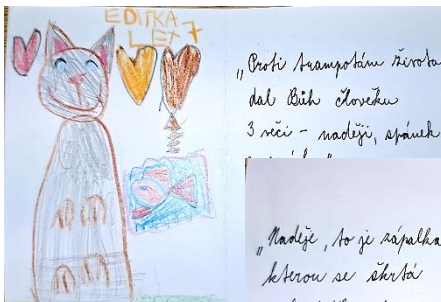 EDITKA
LET 7
„Proti trampotám života
dal Bůh člověku
3 věci – naději, spánek
„Naděje, to je zápalka
kterou se škrtá